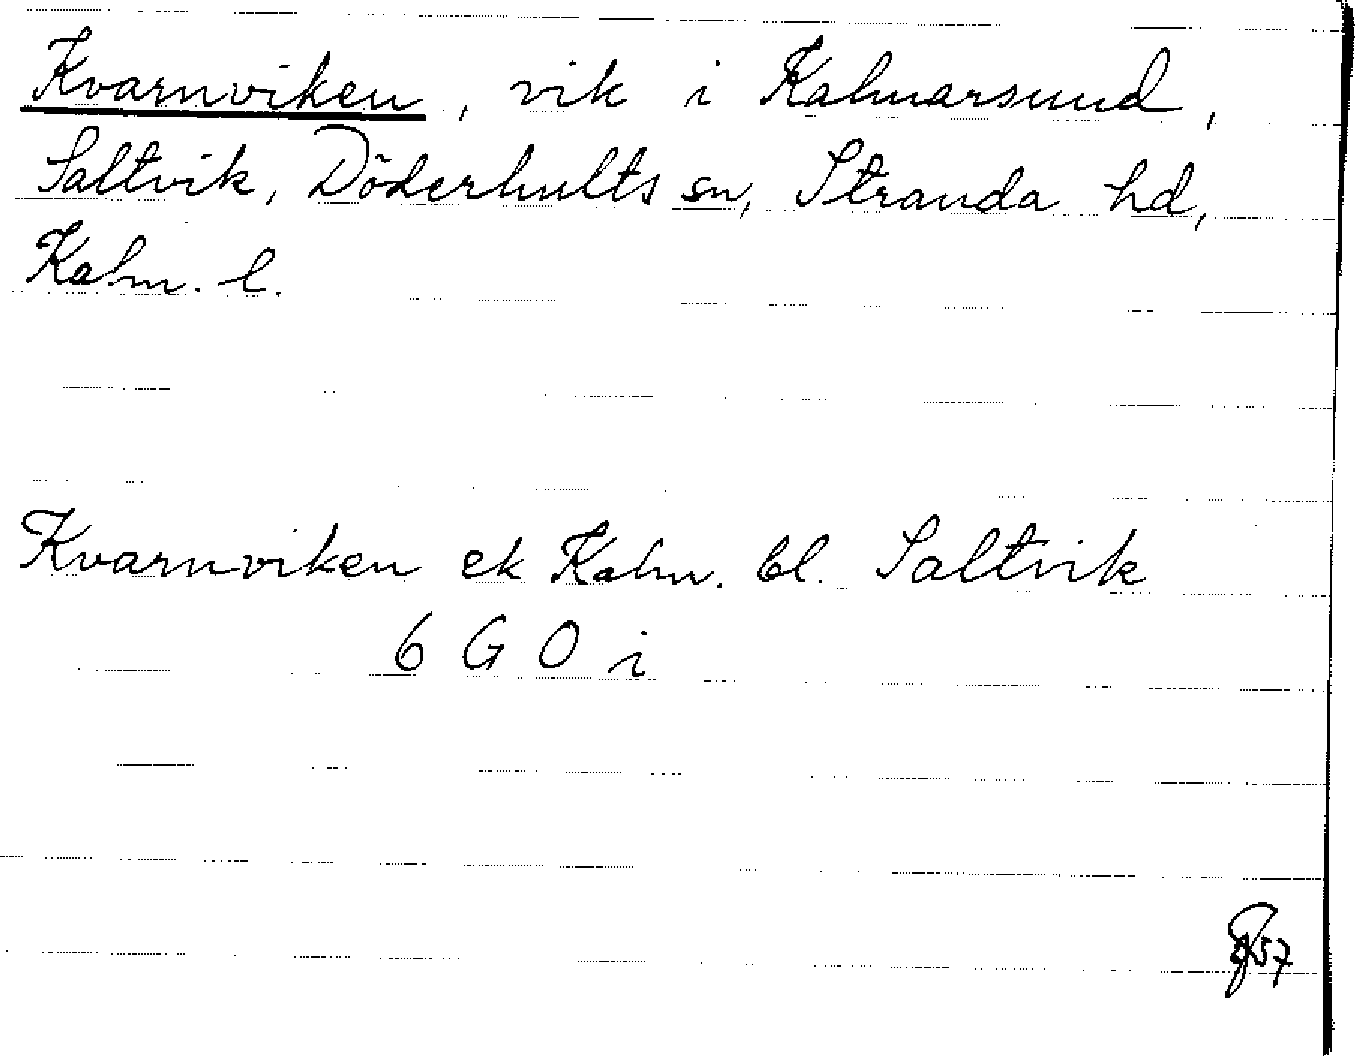 Kvarnviken, vik i Kalmarsund,
Saltvik, Döderhults sn, Stranda hd,
Kalm. l.
Kvarnviken ek Kalm. bl. Saltvik
6 G O i
57